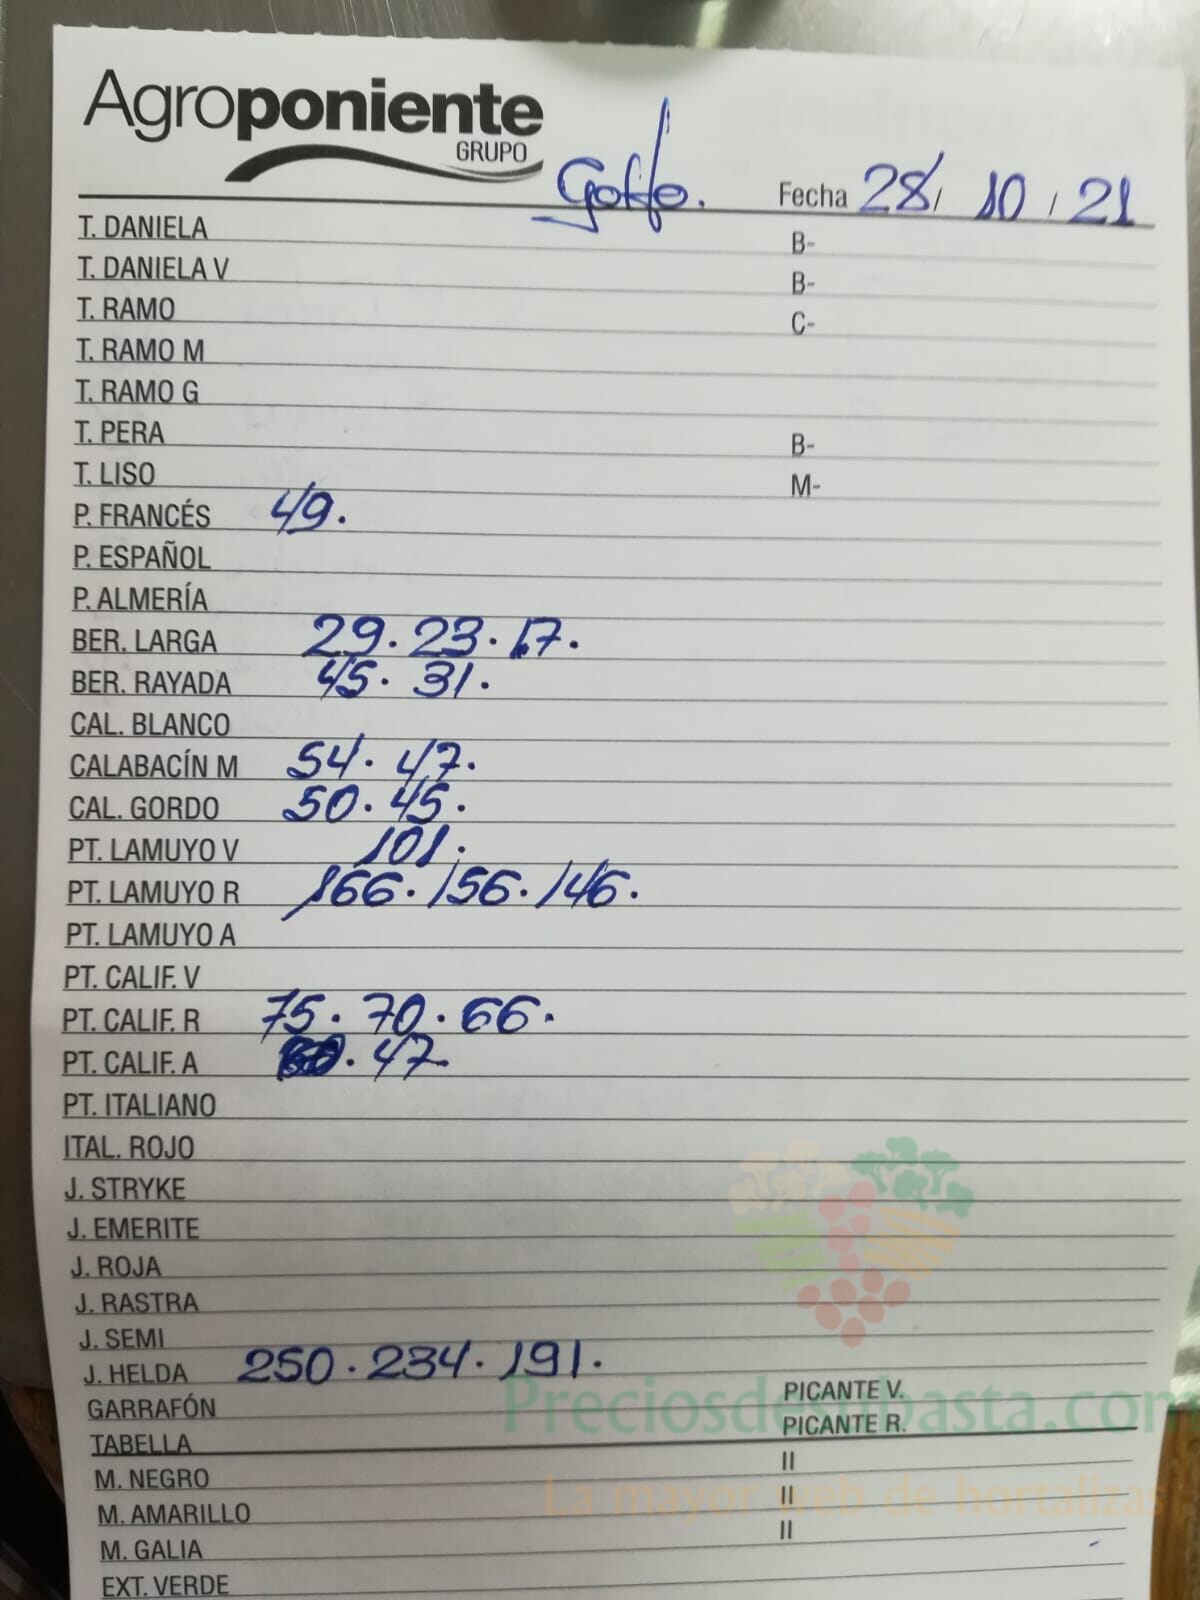 Agroponiente
GRUPO
Golfo. Fecha 28 / 10 / 21
T. DANIELA B-
T. DANIELA V B-
T. RAMO C-
T. RAMO M
T. RAMO G
T. PERA B-
T. LISO M-
P. FRANCÉS 49.
P. ESPAÑOL
P. ALMERÍA
BER. LARGA 29. 23. 17.
BER. RAYADA 45. 31.
CAL. BLANCO
CALABACÍN M 54. 47.
CAL. GORDO 50. 45.
PT. LAMUYO V 101.
PT. LAMUYO R 166. 156. 146.
PT. LAMUYO A
PT. CALIF. V
PT. CALIF. R 75. 70. 66.
PT. CALIF. A . 47
PT. ITALIANO
ITAL. ROJO
J. STRYKE
J. EMERITE
J. ROJA
J. RASTRA
J. SEMI
J. HELDA 250. 234. 191.
GARRAFÓN PICANTE V.
TABELLA PICANTE R.
M. NEGRO II
M. AMARILLO II
M. GALIA II
EXT. VERDE
Preciosdesubasta.com
La mayor web de hortalizas